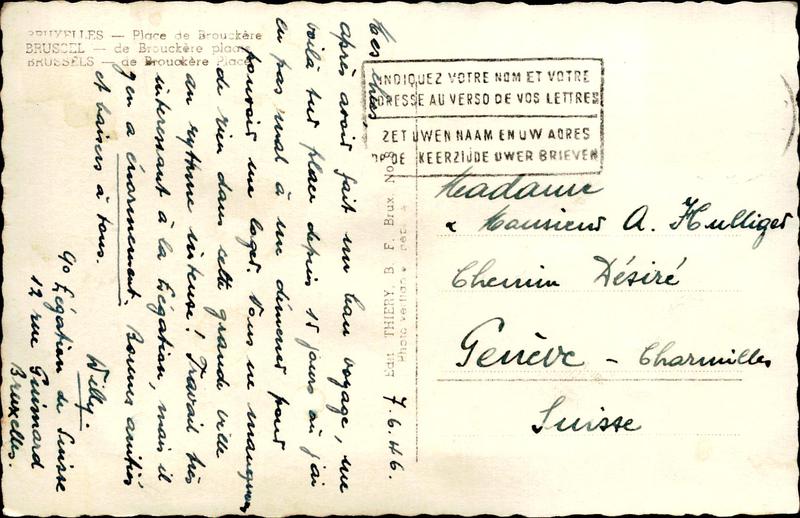 BRUXELLES — Place de Brouckère
BRUSSEL — de Brouckère plaats
BRUSSELS — de Brouckère Place
INDIQUEZ VOTRE NOM ET VOTRE
ADRESSE AU VERSO DE VOS LETTRES
ZET UWEN NAAM EN UW ADRES
OP DE KEERZIJDE UWER BRIEVEN
7.6.46.
Mes chers
après avoir fait un beau voyage, me
voilà sur place depuis 15 jours où j'ai
eu pas mal à me démener pour
pouvoir me loger. Nous ne manquons
de rien dans cette grande ville
au rythme intense! Travail très
intéressant à la Légation, mais il
y en a énormément. Bonnes amitiés
et baisers à tous.
Willy.
c/o Légation de Suisse
12 rue Guimard
Bruxelles.
Edit THIERY, B. F. Brux. No 8
Madame
& Monsieur A. Hulliger
Chemin Désiré
Genève - Charmilles
Suisse